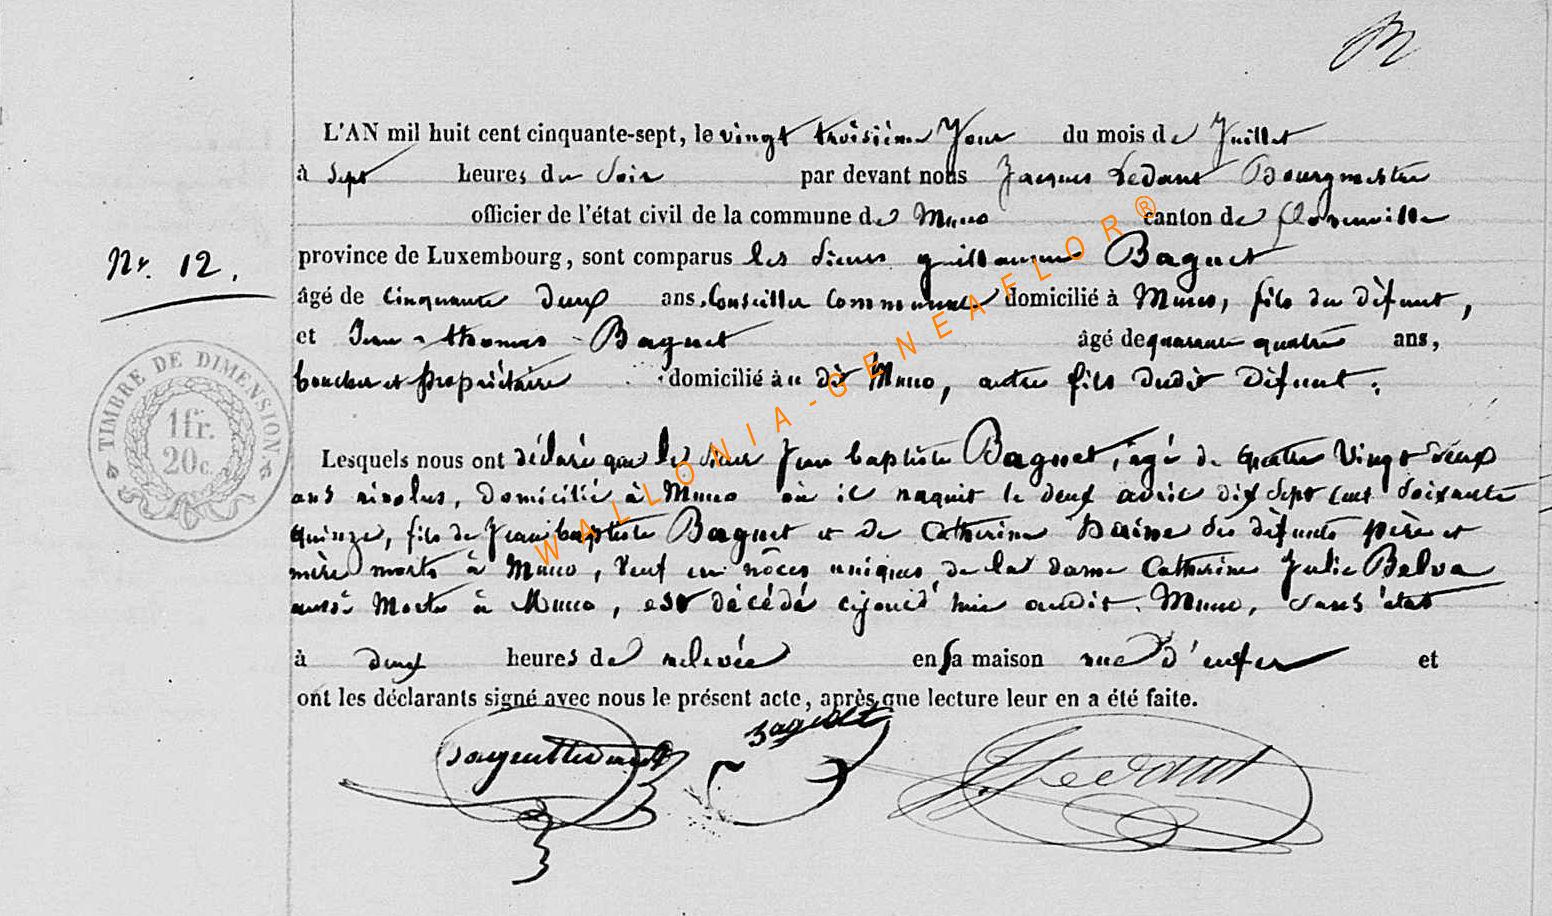 L'AN mil huit cent cinquante-sept, le vingt troisième Jour du mois de Juillet
à Sept heures du Soir par devant nous Jacques Ledant Bourgmestre
officier de l'état civil de la commune de Muno canton de florenville
Nr. 12.
province de Luxembourg, sont comparus les Sieurs guillaume Baguet
âgé de Cinquante deux ans, Conseiller Communal domicilié à Muno, fils du défunt,
et Jean-thomas Baguet âgé de quarante quatre ans,
boucher et propriétaire domicilié à dit Muno, autre fils dudit Défunt.
TIMBRE DE DIMENSION.
1 fr.
20 c.
Lesquels nous ont déclaré que le Sieur Jean baptiste Baguet, âgé de quatre Vingt deux
ans révolus, Domicilié à Muno où il naquit le deux avril dix Sept Cent Soixante
quinze, fils de Jean baptiste Baguet et de Catherine des défunts père et
mère morts à Muno, Veuf en nôces uniques de la dame Catherine Julie Balva
aussi Morte à Muno, est décédé cejourd'hui audit Muno, Sans état
à deux heures de relevée en Sa maison rue d'enfer et
ont les déclarants signé avec nous le présent acte, après que lecture leur en a été faite.
Baguet J. Ledant
WALLONIA-GENEAFLOR®